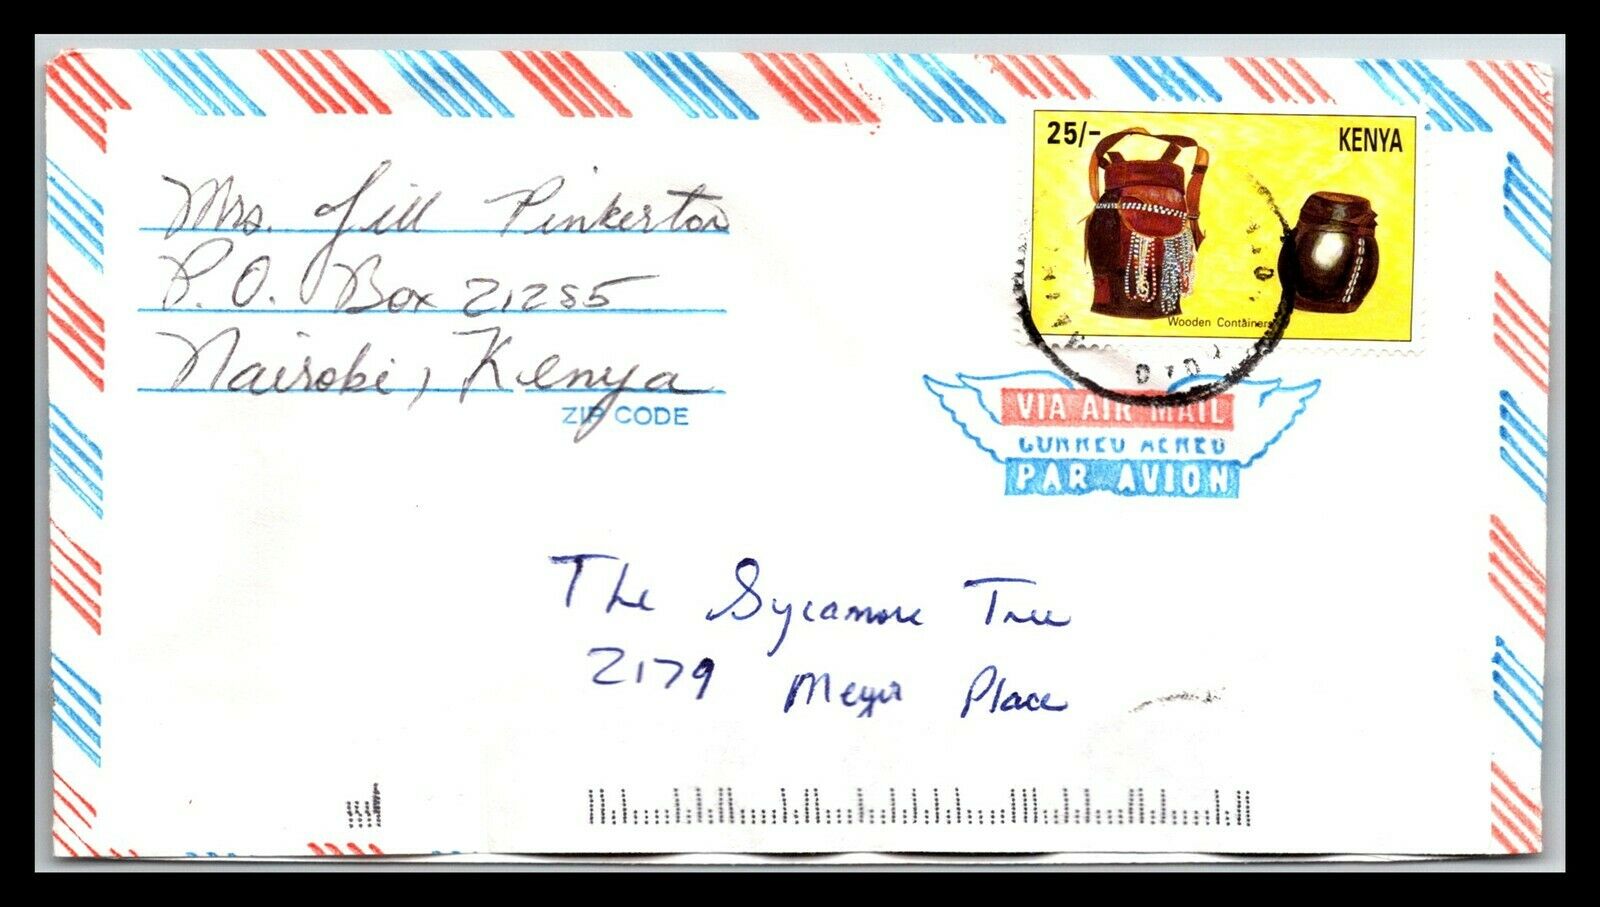 Mrs. Jill Pinkerton
P.O. Box 21255
Nairobi, Kenya
ZIP CODE
25/-
KENYA
Wooden Containers
VIA AIR MAIL
CORREO AEREO
PAR AVION
The Sycamore Tree
2179 Meyer Place